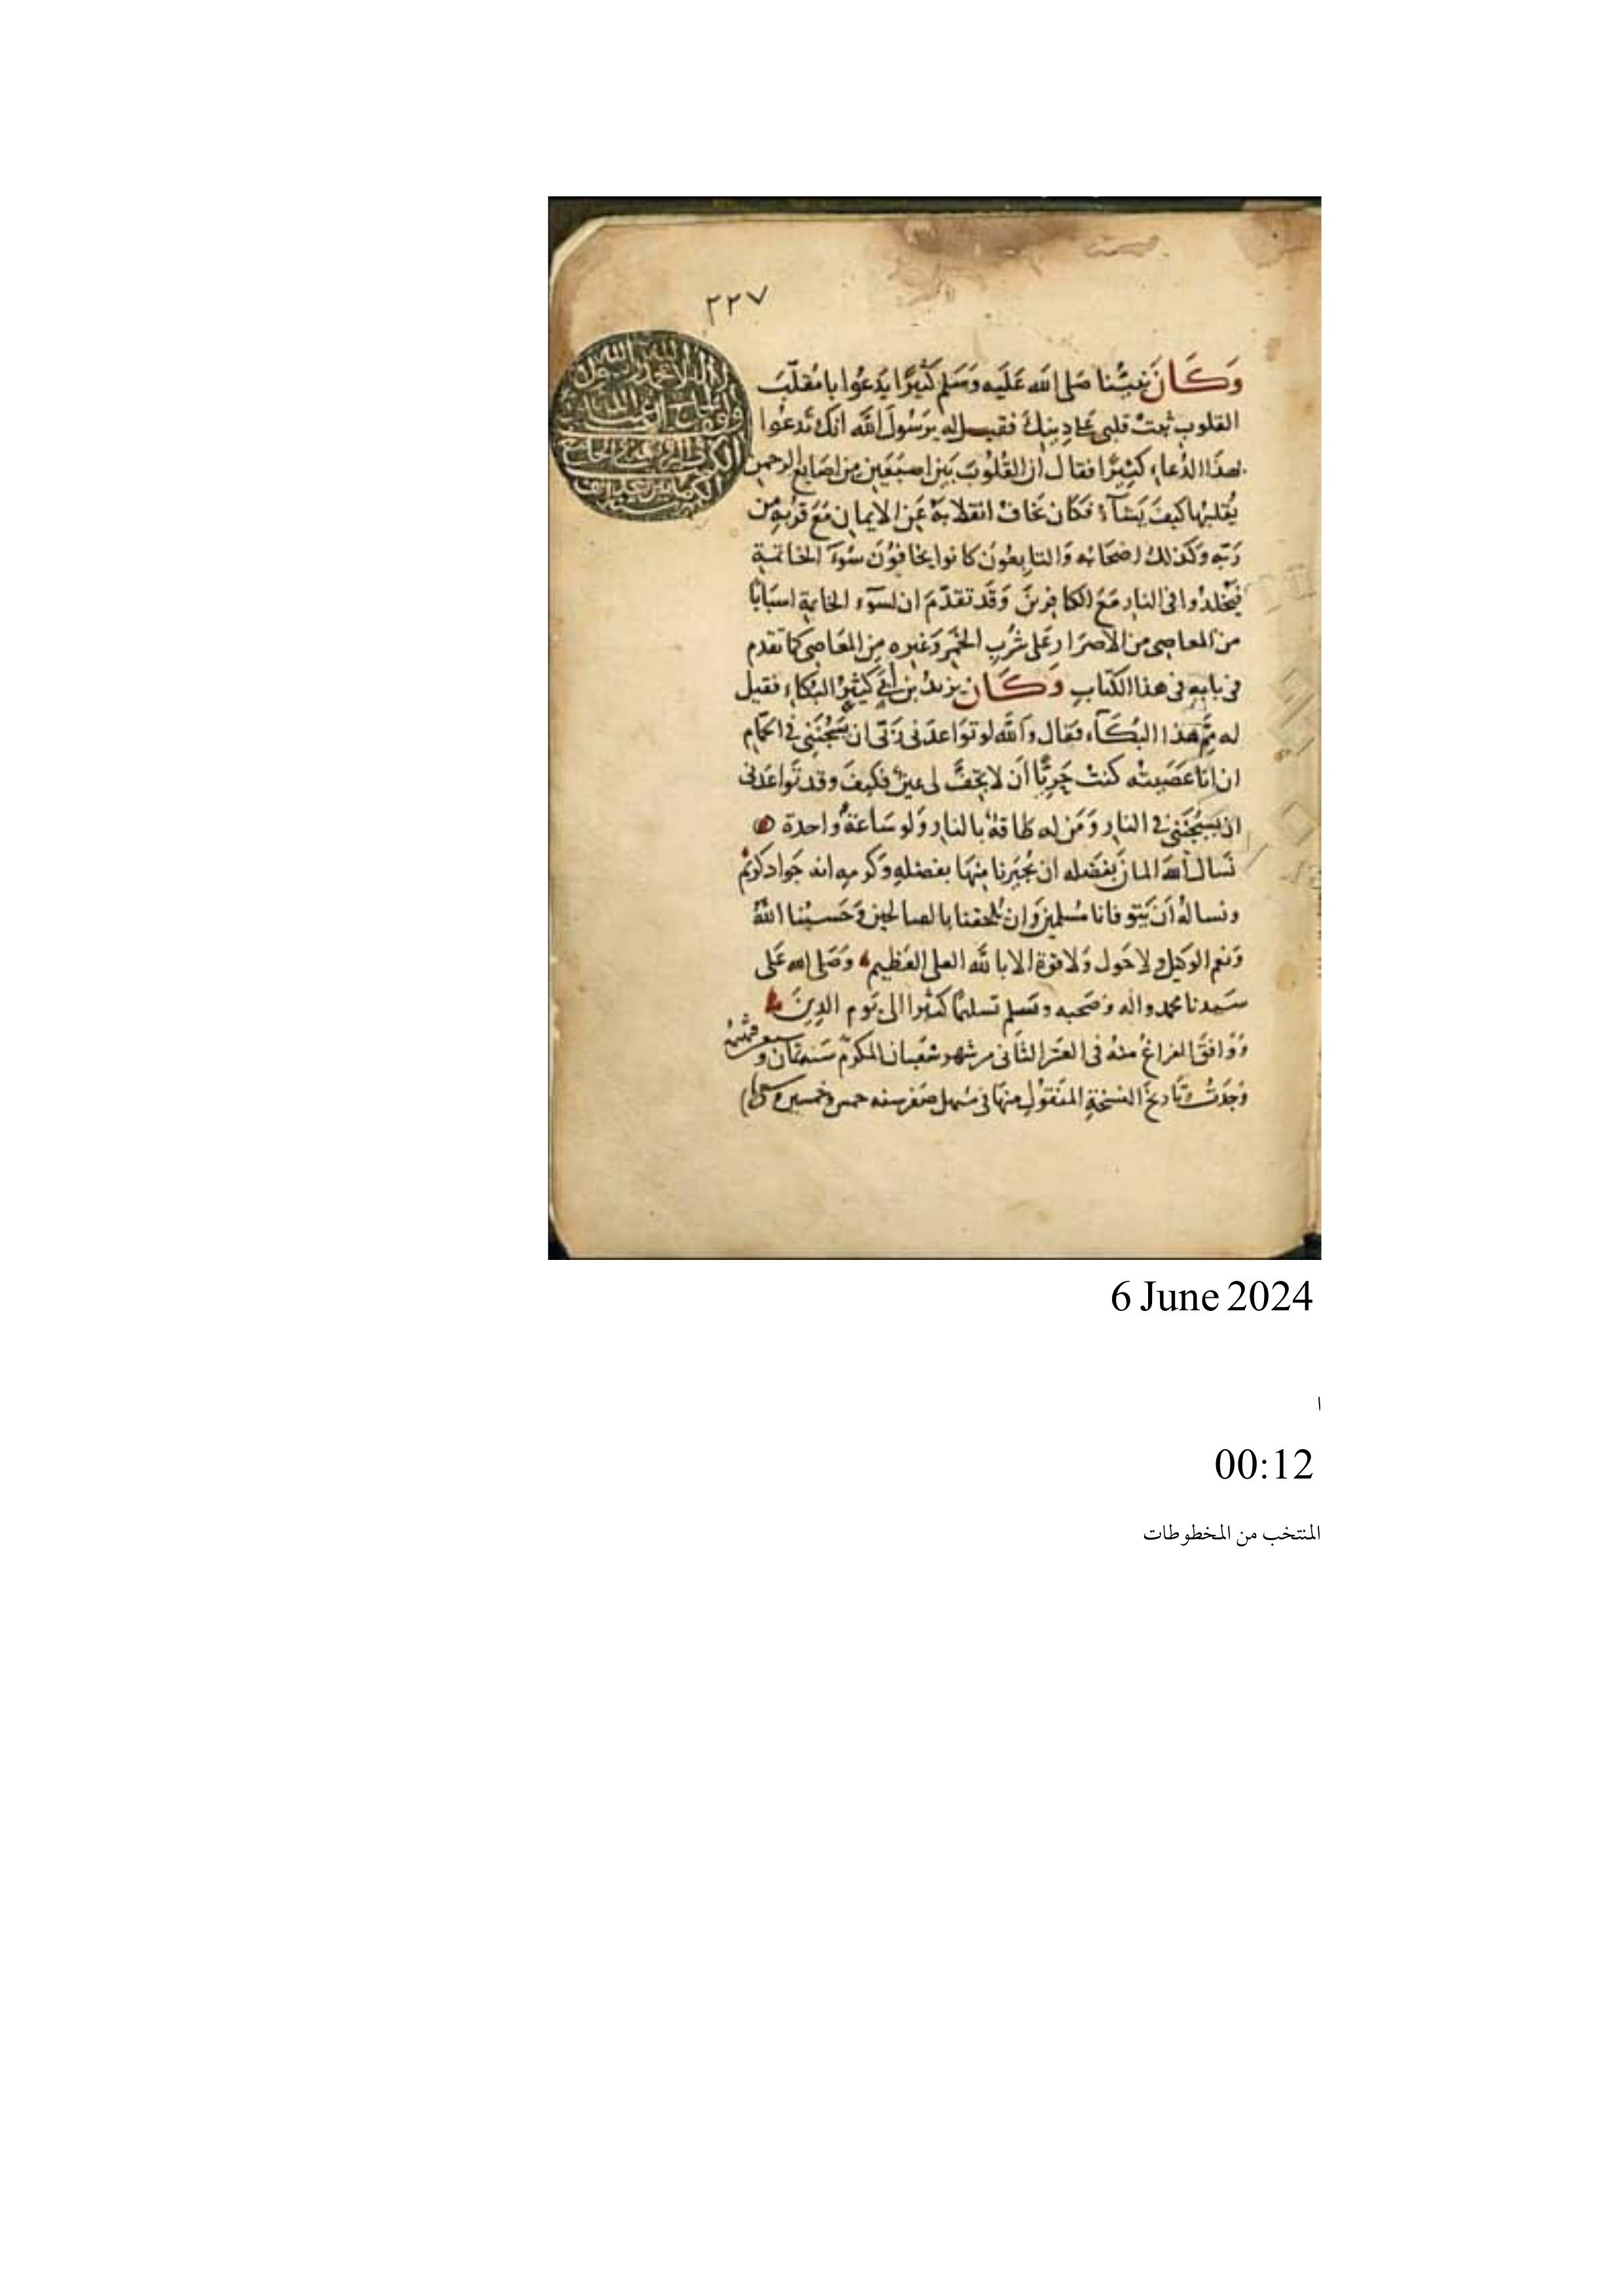 ٢٢٧
وَكَانَ نبيُّنا صَلى الله عَلَيه وَسَلم كَثيرًا يَدعُوا يا مُقلّبَ
القلوب ثبتْ قلبي على دِينِكَ فقيل له يرَسُولَ اللَّه انكَ تَدعُوا
بهذَا الدُعاء كثِيرًا فقال ان القُلُوبَ بَيَن اصبَعَين من اصَابع الرحمن
يُقلبُها كيفَ يَشآء فكَان يخَافُ انقلابهُ عَن الايمان مَعَ قربه من
رَبّه وكذلكَ اصْحَابُه وَالتابِعُون كانوا يخَافوُنَ سُوءَ الخاتمة
فيُخلدُوا في النار مَعَ الكافِرينَ وَقَد تقدّمَ ان لسُوء الخاتمة اسبَابًا
من المعاصِي من الاصرَار عَلى شُربِ الخَمر وَغيره مِنَ المعَاصِي كما تقدم
في بابهِ في هذا الكتابِ وَكَانَ يزيدُ بن أبي كثيرَ البكاء فقيل
له ممَّ هذا البُكَآء فقال وَالله لو تواعدَني رَبّى ان يَسْجُنَنِي في الحَمام
ان انا عَصَيتُه كنتُ حَرِيًّا أن لا تجفَّ لي عين فكيفَ وقد تواعَدَني
ان يَسْجُنَنِي في النار وَمَن له طاقةٌ بالنار وَلو سَاعَةً واحدة
نَسأل الله المنانَ بفَضله ان يُجيَرنا مِنهَا بفضلهِ وَكرمِه انه جَواد كريم
ونسالهُ أن يَتوفانا مسُلمينَ وَان يُلحقنا بالصالحينَ وَحَسبُنا اللَّهُ
وَنعم الوكيل ولا حَول وَلا قوة الا بالله العلي العَظيم وَصَلى الله عَلى
سَيدنا محمد واله وصَحبه وسَلم تسليمًا كثيرا الى يَوم الدِينِ
وَوَافقَ الفراغُ منهُ في العشر الثاني من شهر شعبان المكرّم سَنة ثمان و
وَجَدتُ تَاريخَ النسخَةِ المنَقُول منهَا في مُستهل صَفر سنه خمس وخمسين
6 June 2024
ا
00:12
المنتخب من المخطوطات